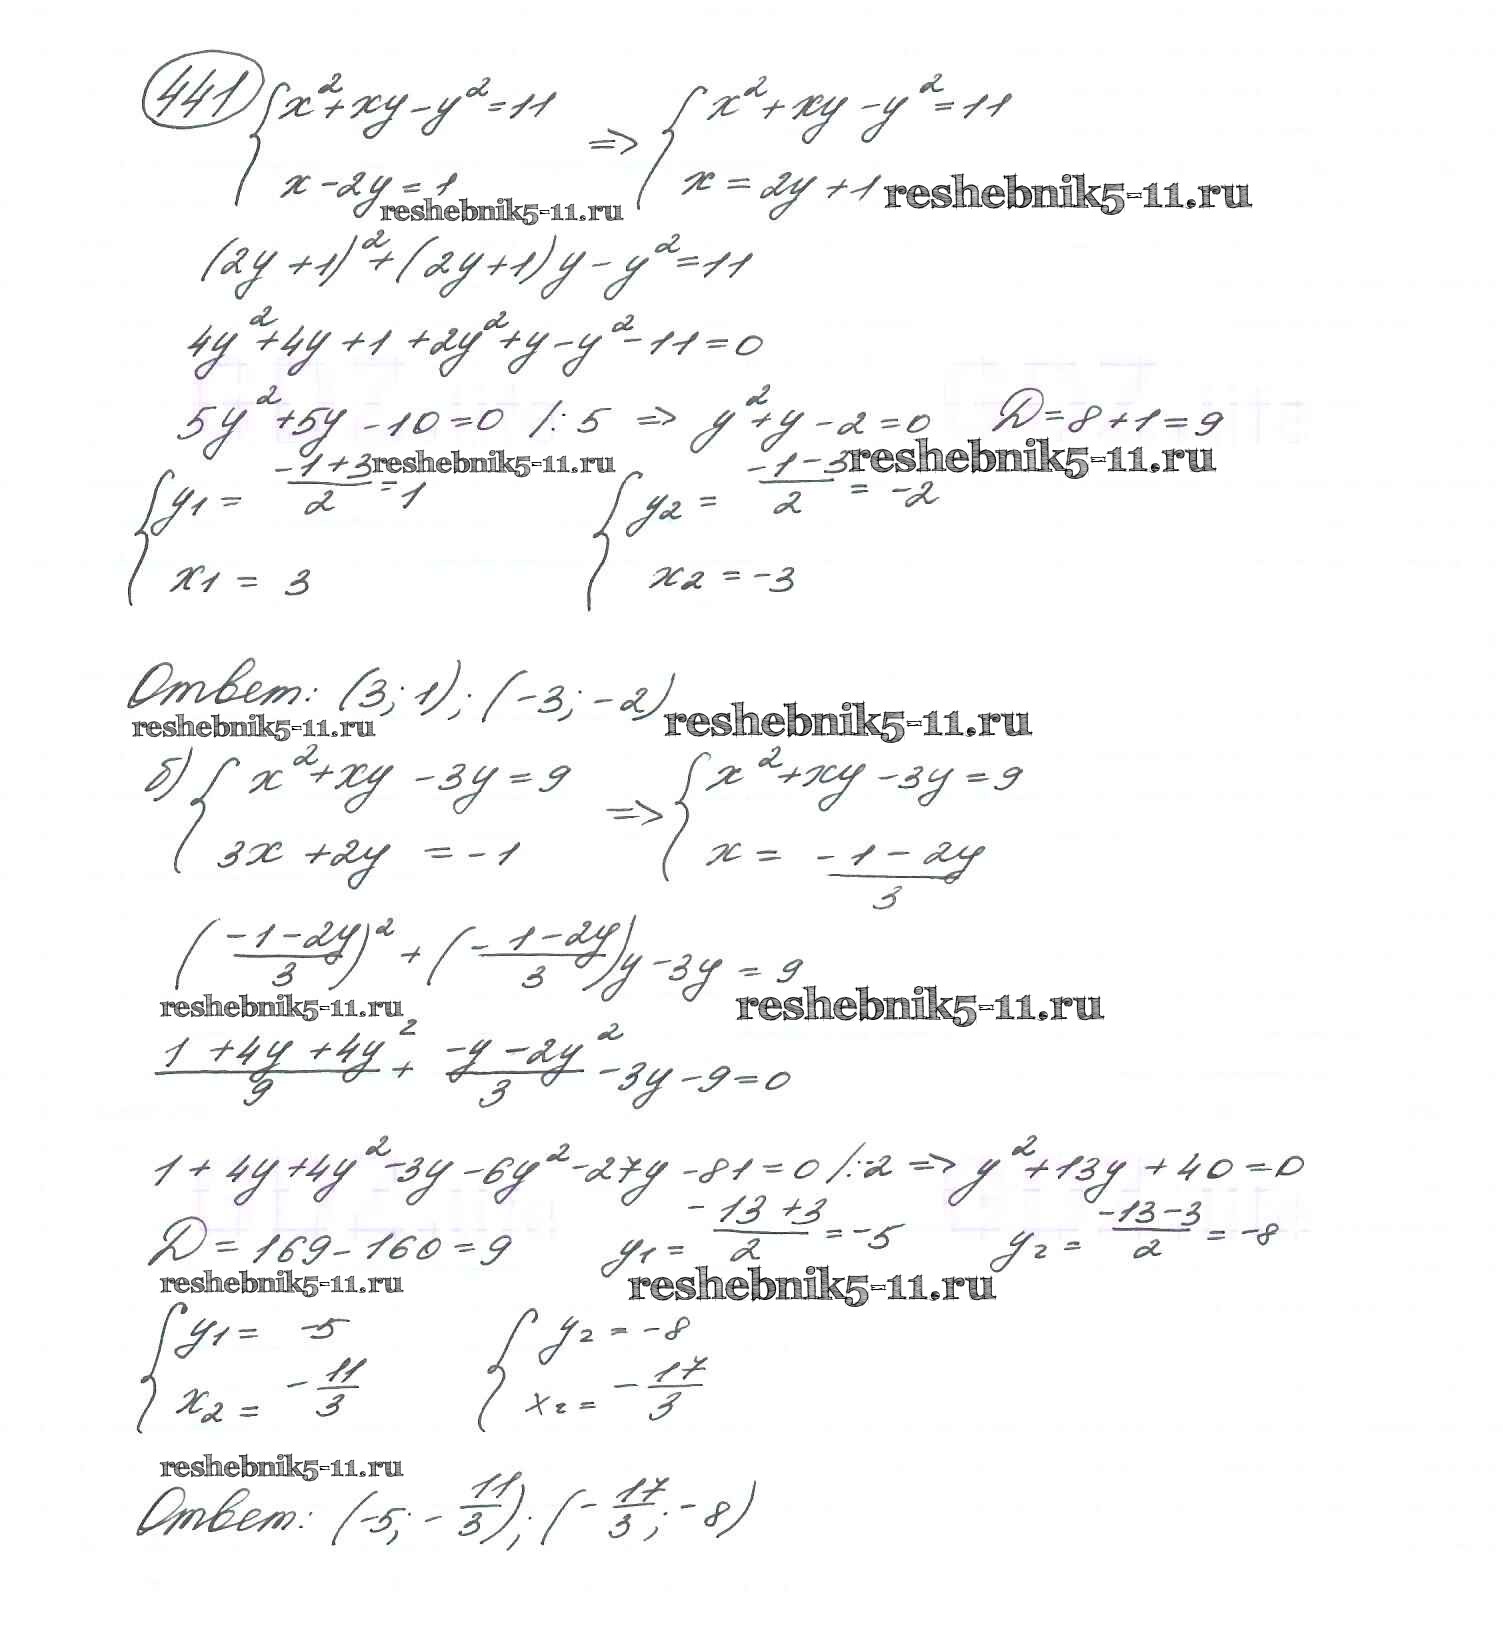 441 { x² + xy - y² = 11 => { x² + xy - y² = 11
x - 2y = 1 x = 2y + 1 reshebnik5-11.ru
reshebnik5-11.ru
(2y + 1)² + (2y + 1)y - y² = 11
4y² + 4y + 1 + 2y² + y - y² - 11 = 0
5y² + 5y - 10 = 0 /: 5 => y² + y - 2 = 0 D = 8 + 1 = 9
reshebnik5-11.ru reshebnik5-11.ru
{ y1 = (-1+3)/2 = 1 { y2 = (-1-3)/2 = -2
x1 = 3 x2 = -3
Ответ: (3; 1); (-3; -2)
reshebnik5-11.ru reshebnik5-11.ru
б) { x² + xy - 3y = 9 => { x² + xy - 3y = 9
3x + 2y = -1 x = (-1-2y)/3
((-1-2y)/3)² + ((-1-2y)/3)y - 3y = 9
reshebnik5-11.ru reshebnik5-11.ru
(1+4y+4y²)/9 + (-y-2y²)/3 - 3y - 9 = 0
1 + 4y + 4y² - 3y - 6y² - 27y - 81 = 0 /:-2 => y² + 13y + 40 = 0
D = 169 - 160 = 9 y1 = (-13+3)/2 = -5 y2 = (-13-3)/2 = -8
reshebnik5-11.ru reshebnik5-11.ru
{ y1 = -5 { y2 = -8
x2 = -11/3 x2 = -17/3
reshebnik5-11.ru
Ответ: (-5; -11/3); (-17/3; -8)